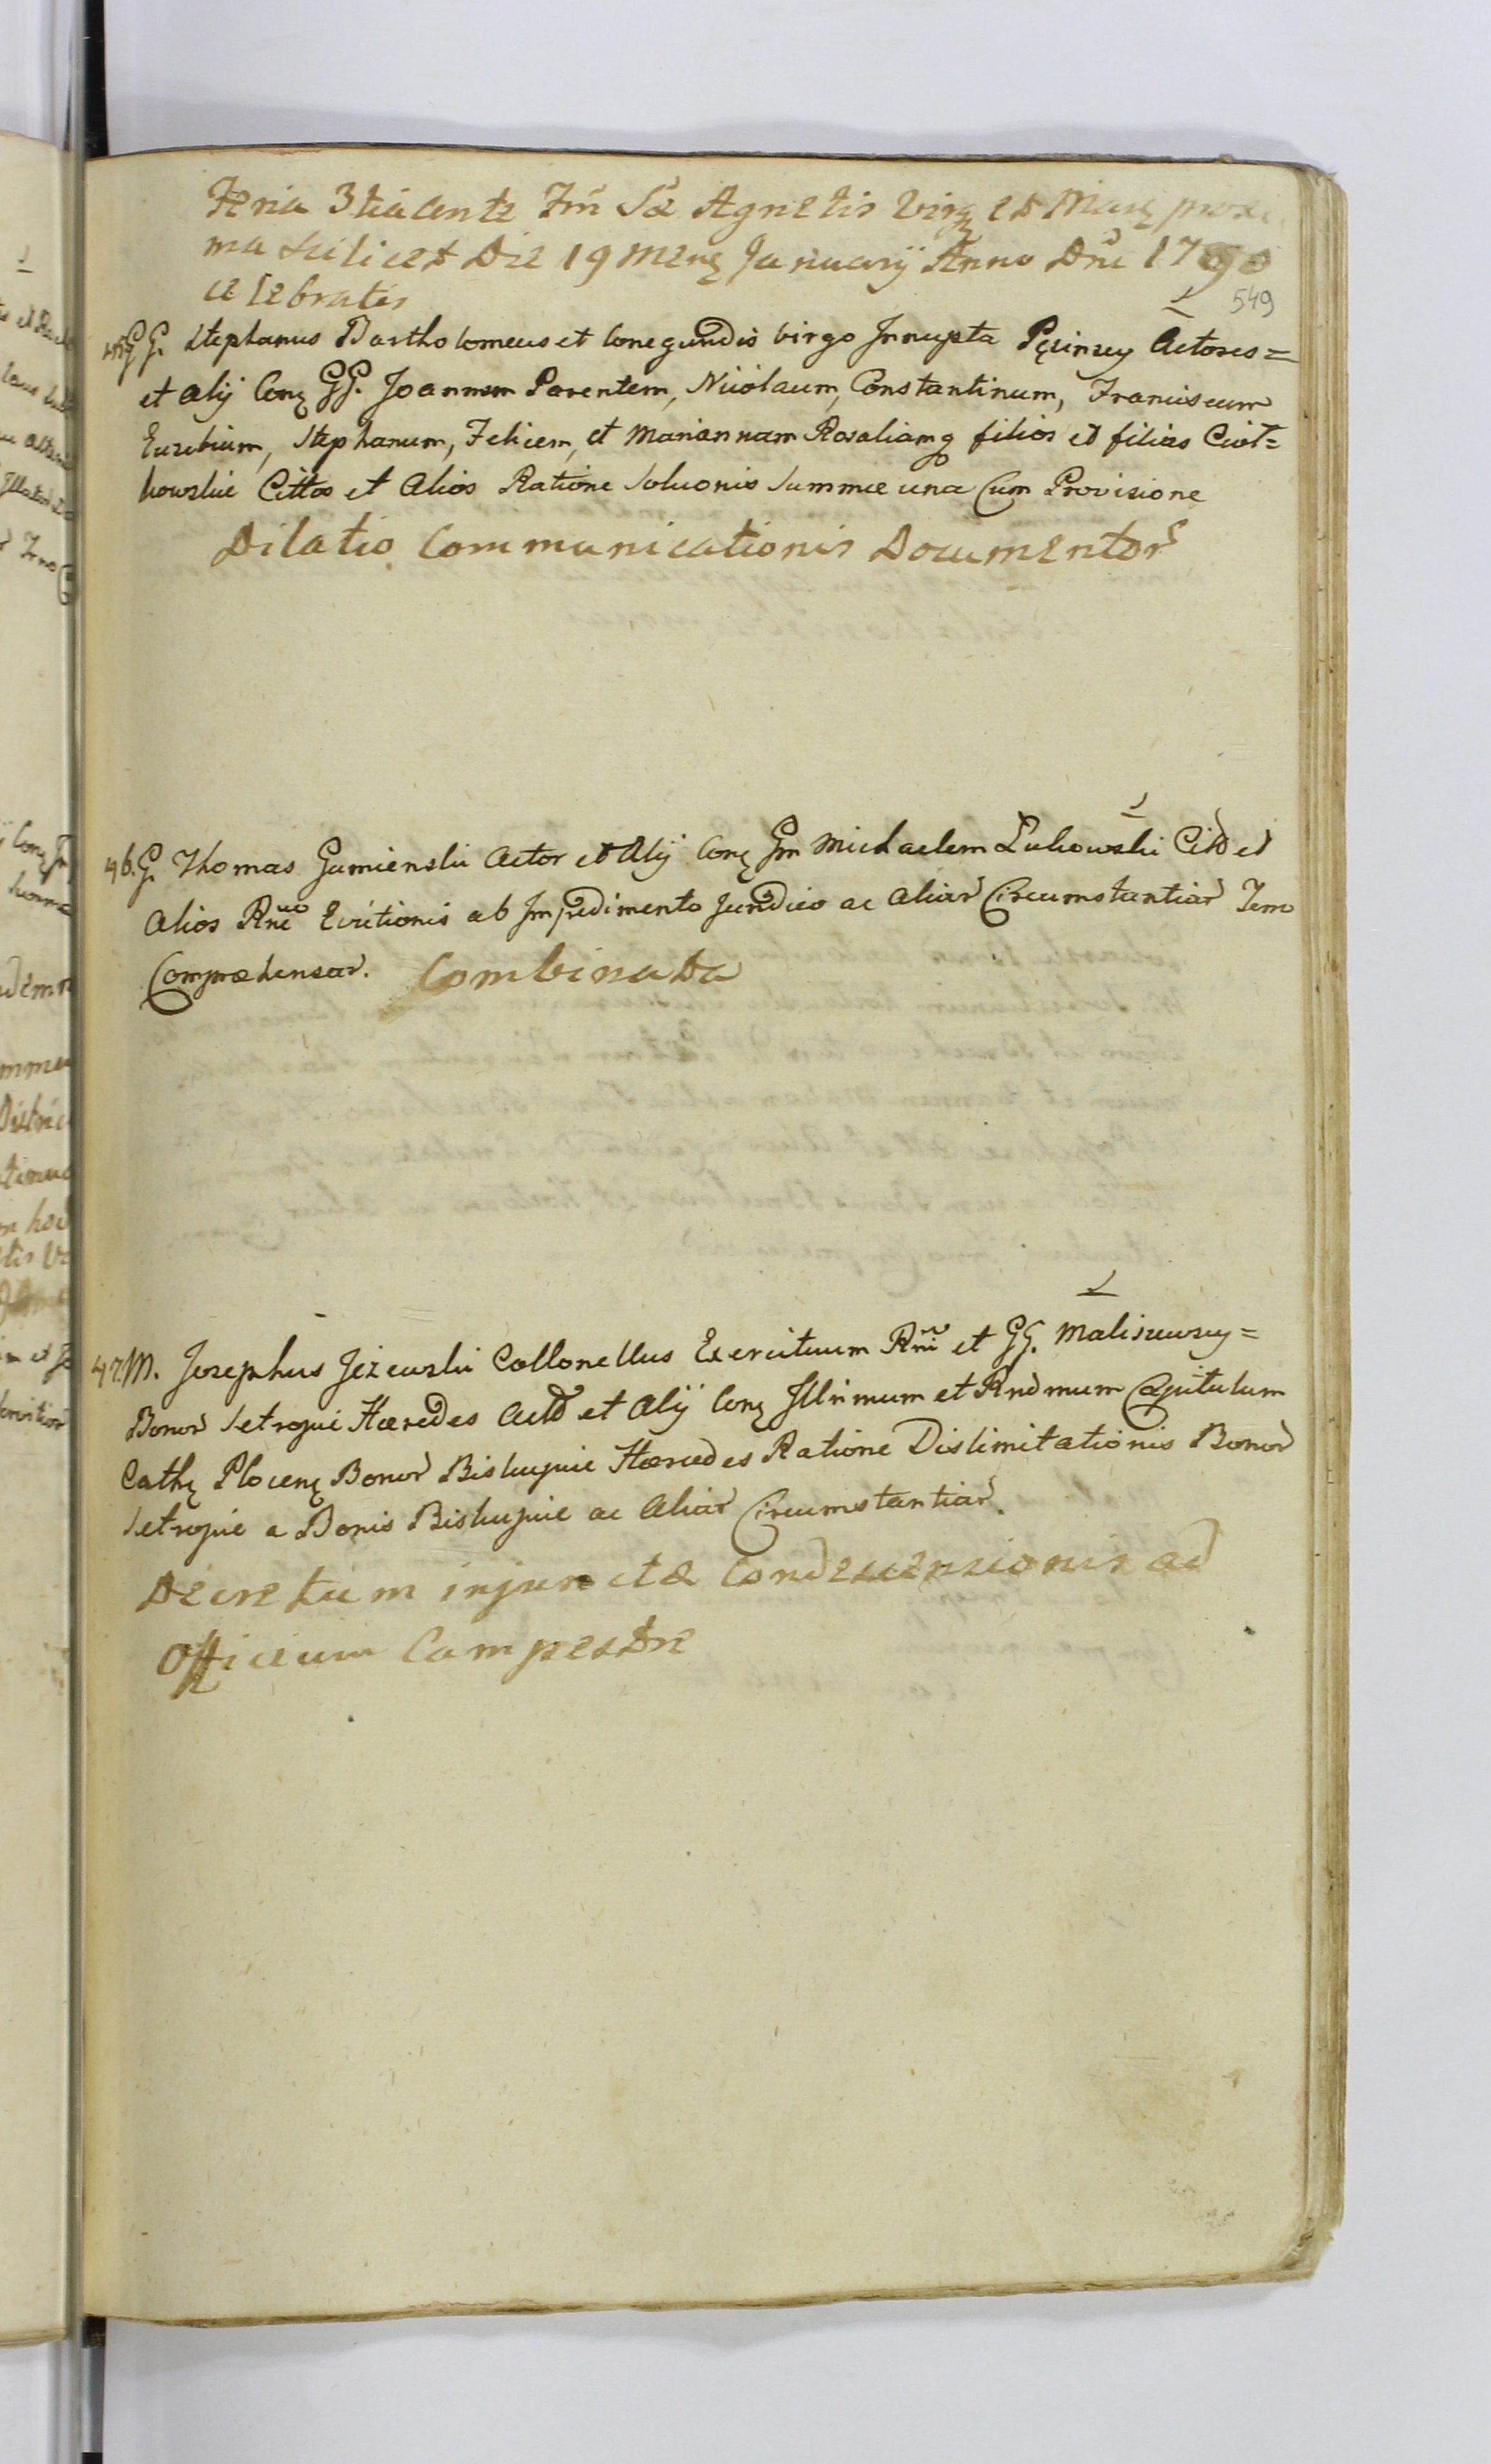 Feria 3tia ante Fm̄ Sæ Agnetis Virg et Marţ proxi
ma scilicet Die 19 Menş January Anno Dni 1790
celebratis
549
45 GG. Stephanus Bartholomeus et Conegundis virgo Innupta Pęcinscy Actores=
et alij Conţ GG. Joannem Parentem, Nicolaum, Constantinum, Franciscum
Euzebium, Stephanum, Felicem, et Mariannam Rosaliamq filios et filias Ciot=
kowskie Cittos et Alios Ratione Soluonis Summæ una Cum Provisione
Dilatio Communicationis Documentor
46. G. Thomas Gumienski Actor et Alij Conţ Gm Michaelem Lukowski Citt et
Alios Rne Evictionis ab Impedimento Juridico ac Aliar Circumstantiar Termo
Compræhensar. Combinata
47. M. Josephus Jeżewski Collonellus Exercituum Rni et GG. Maliszewscy=
Bonor Setropie Hæredes Act et Alij Conţ Illrimum et Rndmum Capitulum
Cathę Plocenţ Bonor Biskupie Hæredes Ratione Dislimitationis Bonor
Setropie a Bonis Biskupie ac Aliar Circumstantiar.
Decretum injunctæ Condescensionis ad
Officium Campestre